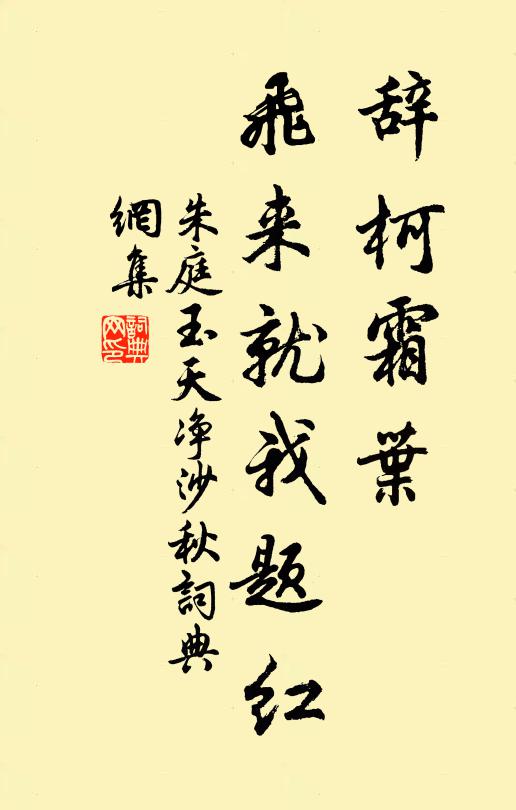 辞柯霜葉
飛来就我题红
朱庭玉天净沙秋詞典
網集
詞典
网印